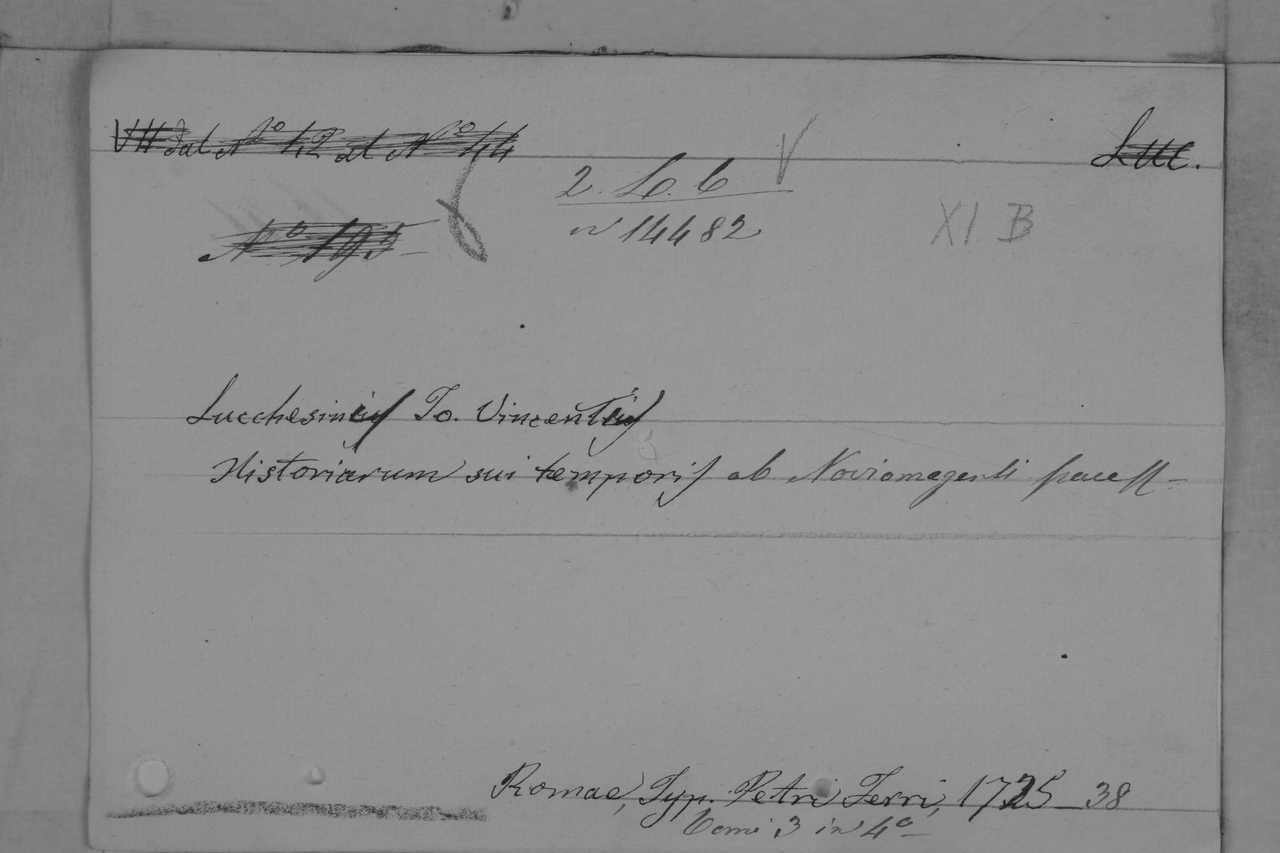 VII dal Nº 42 al Nº 44
Luc.
2. L. 6 V
nº 14482
XI B
Nº 193
Lucchesinius Io. Vincentius
Historiarum sui temporis ab Noviomagensi pace
Romae, Typ. Petri Ferri, 1725–38
Tomi 3 in 4º